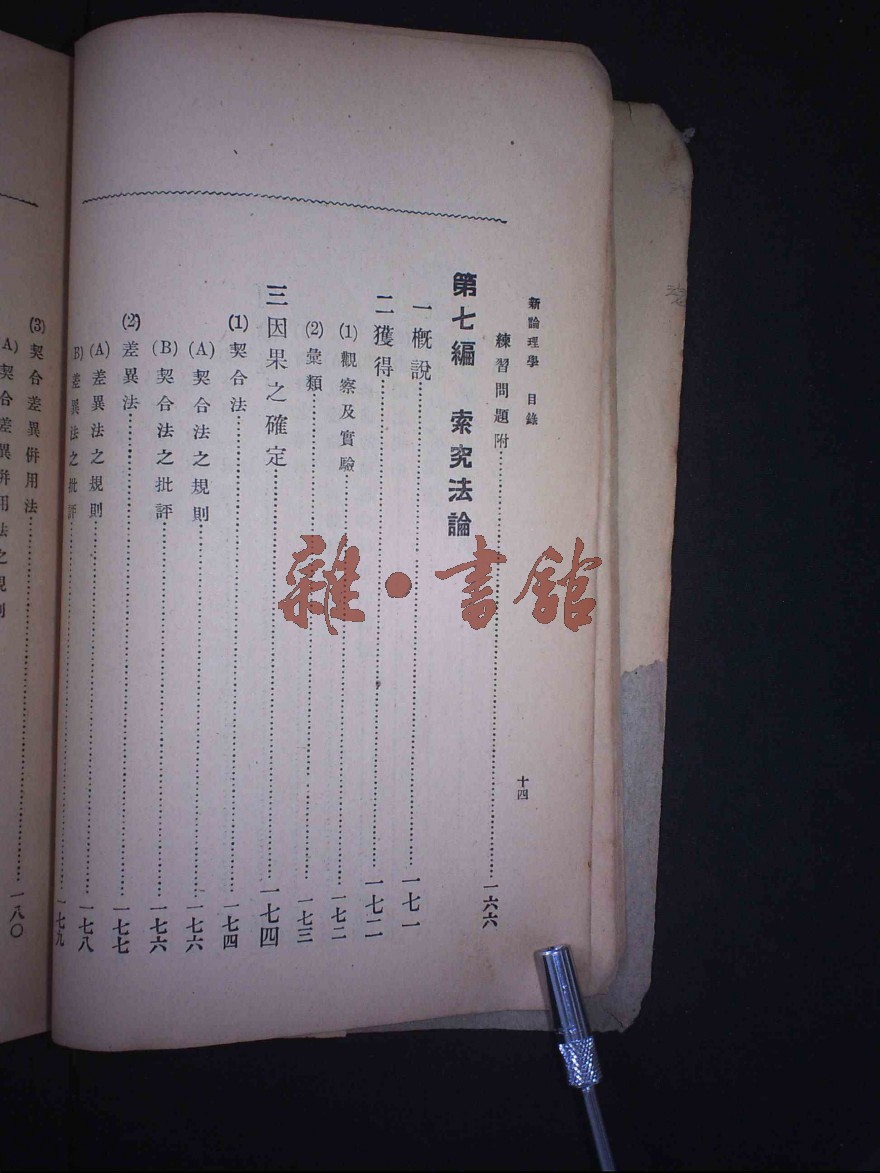 新論理學 目錄
十四
練習問題附……一六六
第七編 索究法論
一 概說……一七一
二 獲得……一七二
(1) 觀察及實驗……一七二
(2) 彙類……一七三
三 因果之確定……一七四
(1) 契合法……一七四
(A) 契合法之規則……一七六
(B) 契合法之批評……一七六
(2) 差異法……一七七
(A) 差異法之規則……一七八
B) 差異法之批評……一七九
(3) 契合差異併用法……一八〇
A) 契合差異併用法之規則
雜·書館